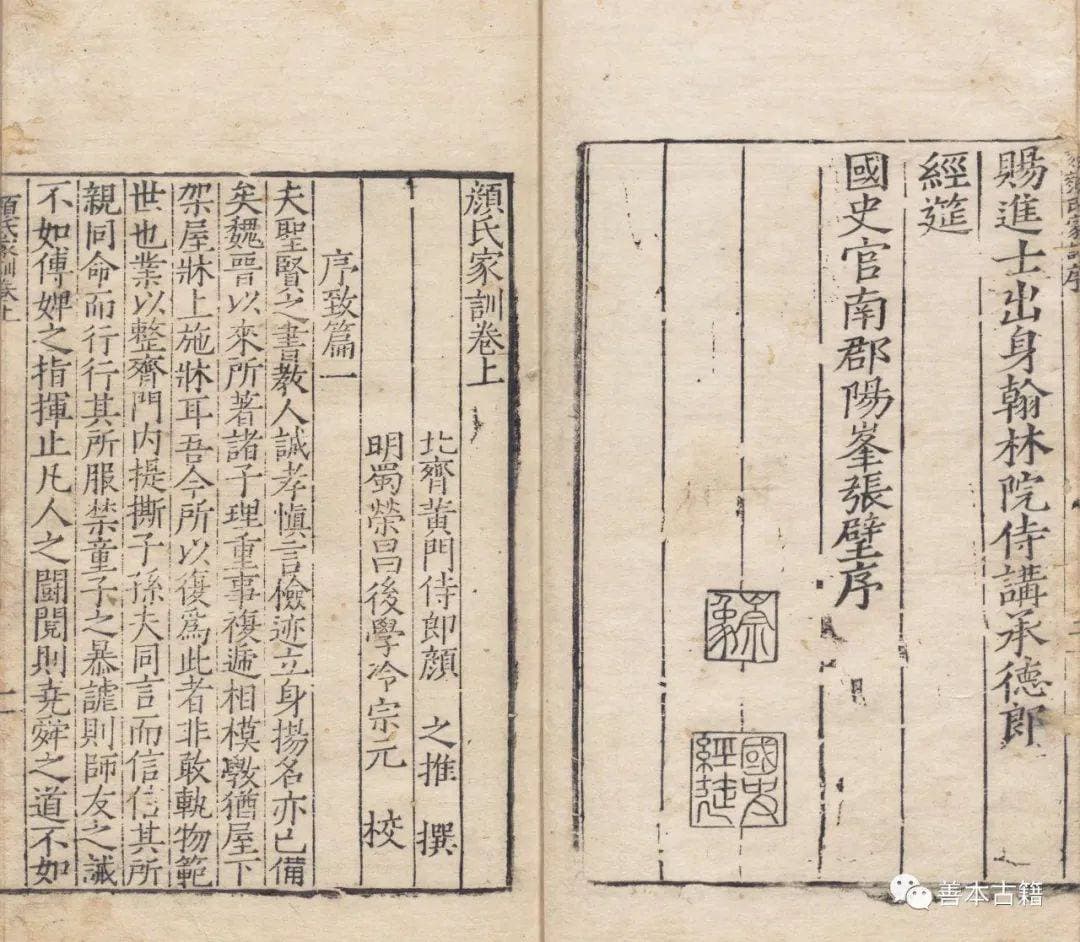 賜進士出身翰林院侍講承德郎
經筵
國史官南郡陽峯張璧序
崇象
國史經筵
顏氏家訓卷上
北齊黃門侍郎顏之推 撰
明蜀榮昌後學冷宗元 校
序致篇一
夫聖賢之書教人誠孝慎言檢迹立身揚名亦已備
矣魏晉以來所著諸子理重事複遞相模斆猶屋下
架屋牀上施牀耳吾今所以復爲此者非敢軌物範
世也業以整齊門内提撕子孫夫同言而信信其所
親同命而行行其所服禁童子之暴謔則師友之誡
不如傅婢之指揮止凡人之鬪䦧則堯舜之道不如
顏氏家訓卷上
一
善本古籍